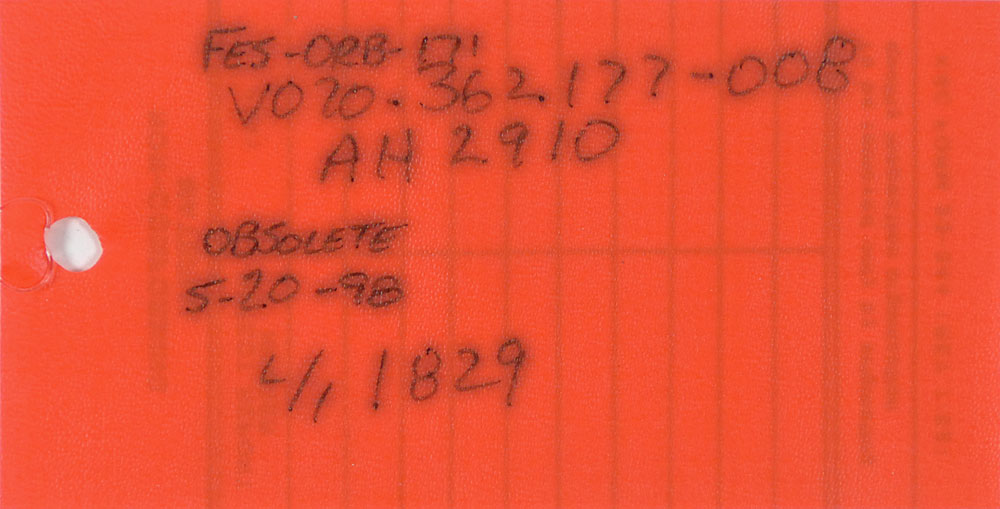 FES-ORB-171
V070-362177-008
AH 2910
OBSOLETE
5-20-98
4/, 1829